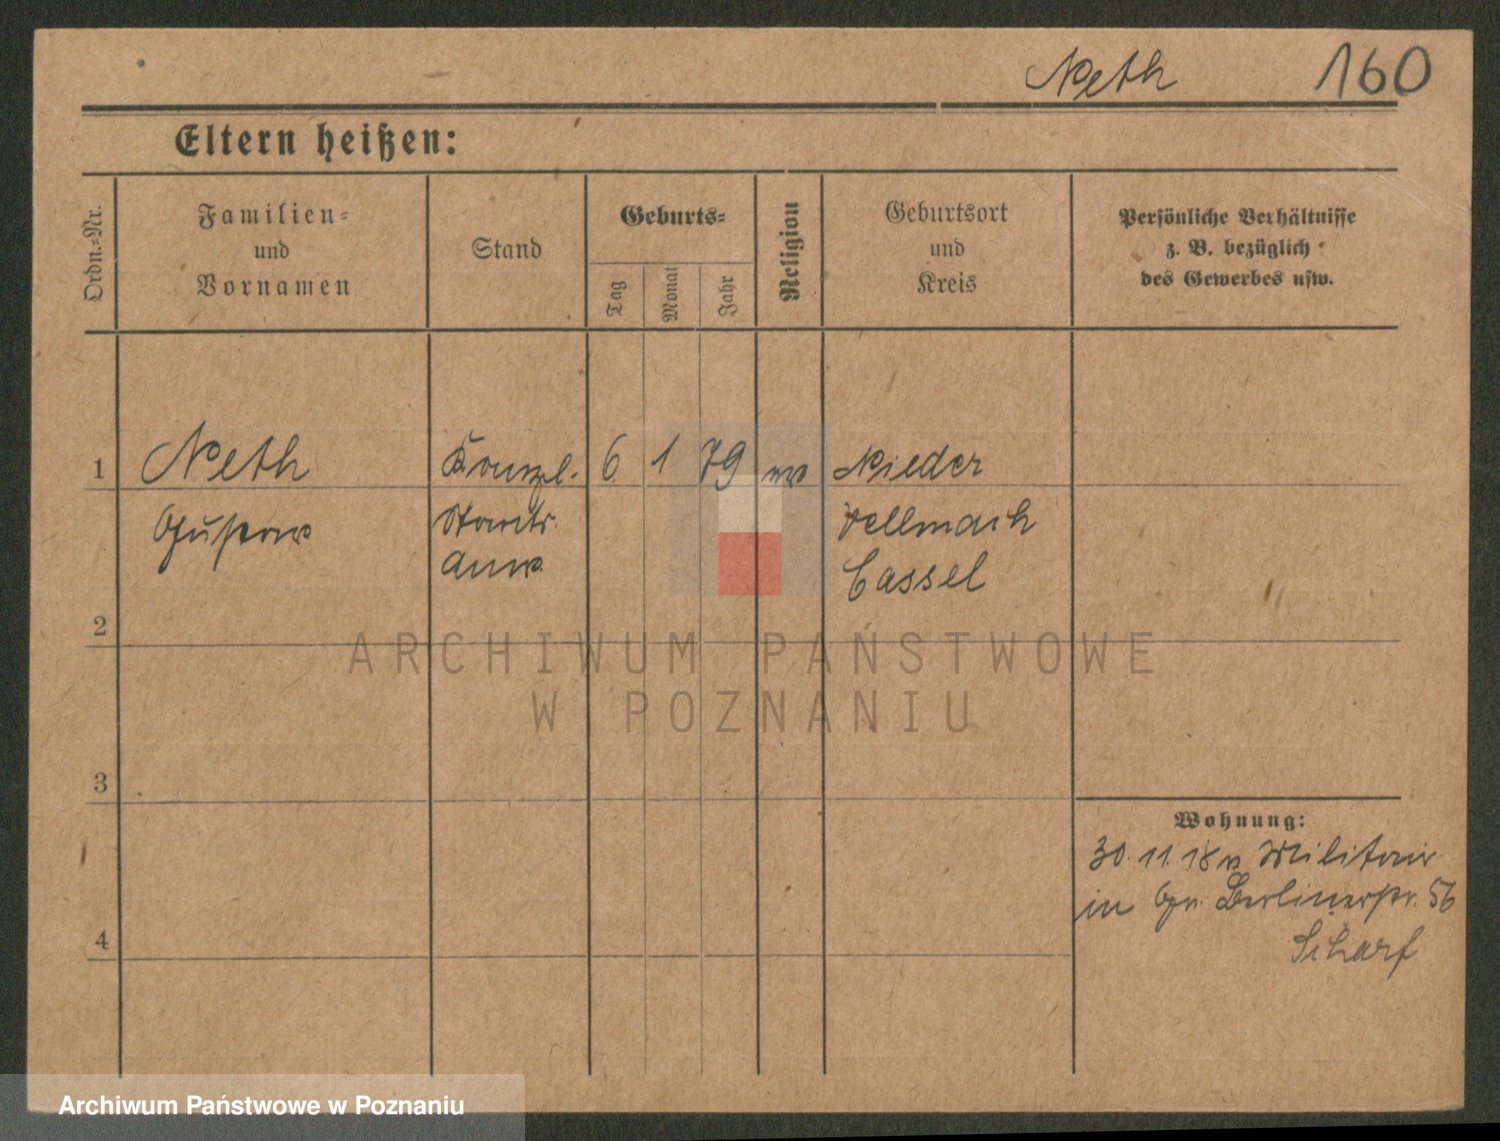 Neth 160
Eltern heißen:
Ordn.=Nr.
Familien=
und
Vornamen
Stand
Geburts=
Tag
Monat
Jahr
Religion
Geburtsort
und
Kreis
Persönliche Verhältnisse
z. B. bezüglich
des Gewerbes usw.
1 Neth Kanzl. 6 1 79 Nieder
Gustav Staats Vellmach
Anw. Cassel
2
3
4
Wohnung:
30. 11. 18 v. Militair
in Gr. Berlinerstr. 56
Scharf
ARCHIWUM PAŃSTWOWE
W POZNANIU
Archiwum Państwowe w Poznaniu